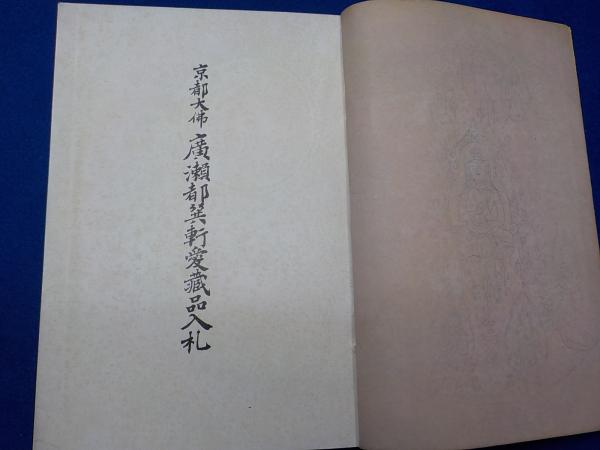 京都大佛 廣瀬都巽軒愛藏品入札